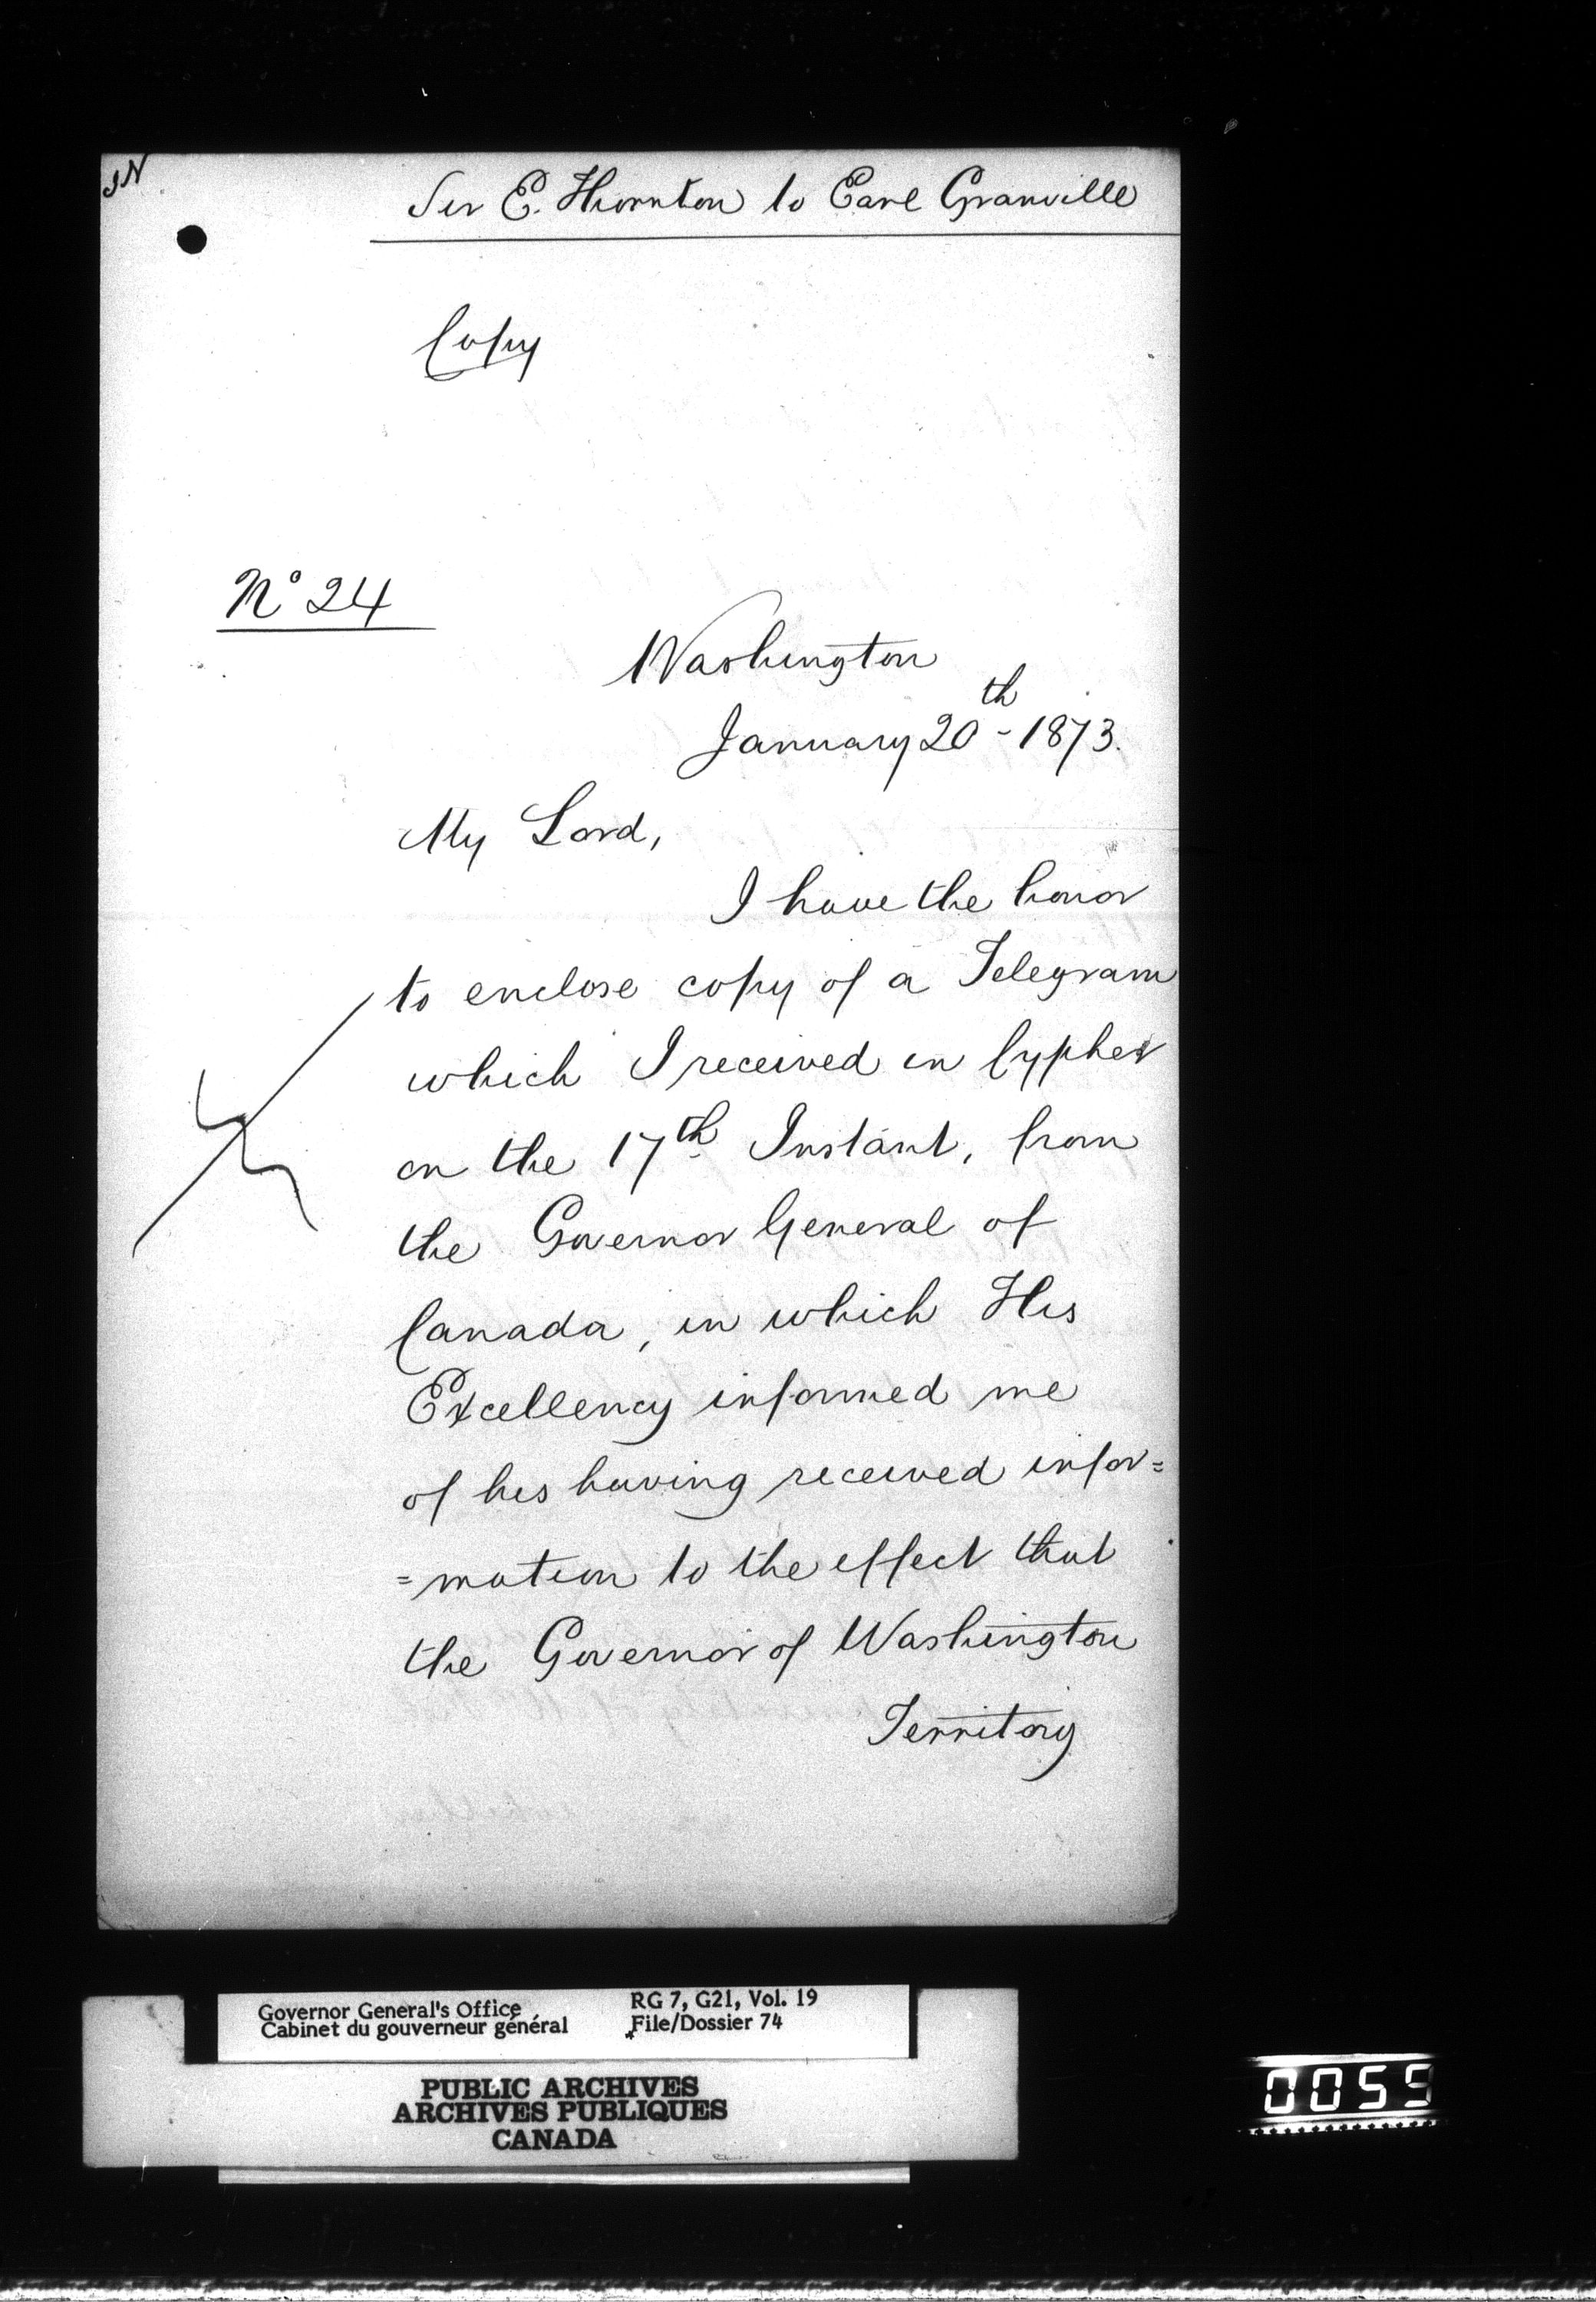 JN
Sir E. Thornton to Earl Granville
Copy
No 24
Washington
January 20th - 1873.
My Lord,
I have the honor
to enclose copy of a Telegram
which I received in Cypher
on the 17th Instant, from
the Governor General of
Canada, in which His
Excellency informed me
of his having received infor=
=mation to the effect that
the Governor of Washington
Territory
Governor General's Office
Cabinet du gouverneur général
RG 7, G21, Vol. 19
File/Dossier 74
PUBLIC ARCHIVES
ARCHIVES PUBLIQUES
CANADA
0055